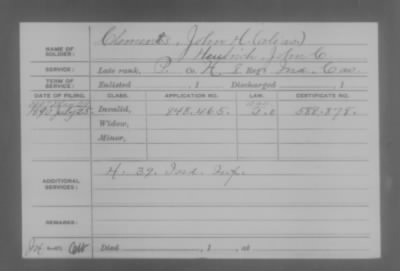 Clements, John H. (alias)
NAME OF SOLDIER: Heinrich, John C
SERVICE: Late rank, P. Co. H, Reg't Ind. Cav.
TERM OF SERVICE: Enlisted , 1 Discharged , 1
DATE OF FILING. CLASS. APPLICATION NO. LAW. CERTIFICATE NO.
1890 July 25 Invalid, 848.465. 588.878.
Widow,
Minor,
ADDITIONAL SERVICES: H. 39. Ind. Inf.
REMARKS:
Died , 1 , at